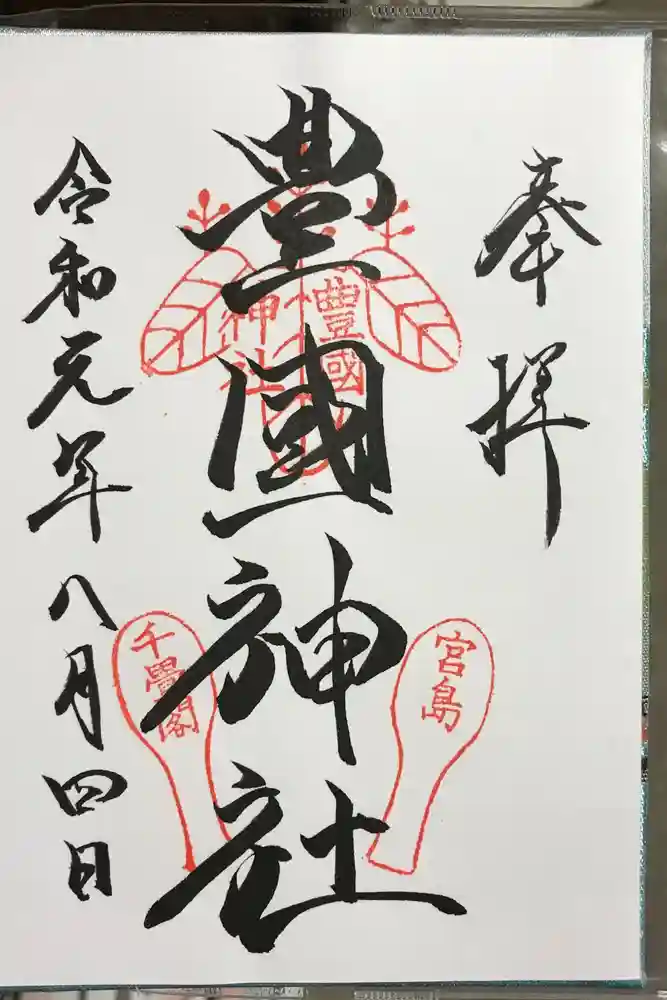 奉拝
豊國神社
豐國
神社
宮島
千畳閣
令和元年八月四日